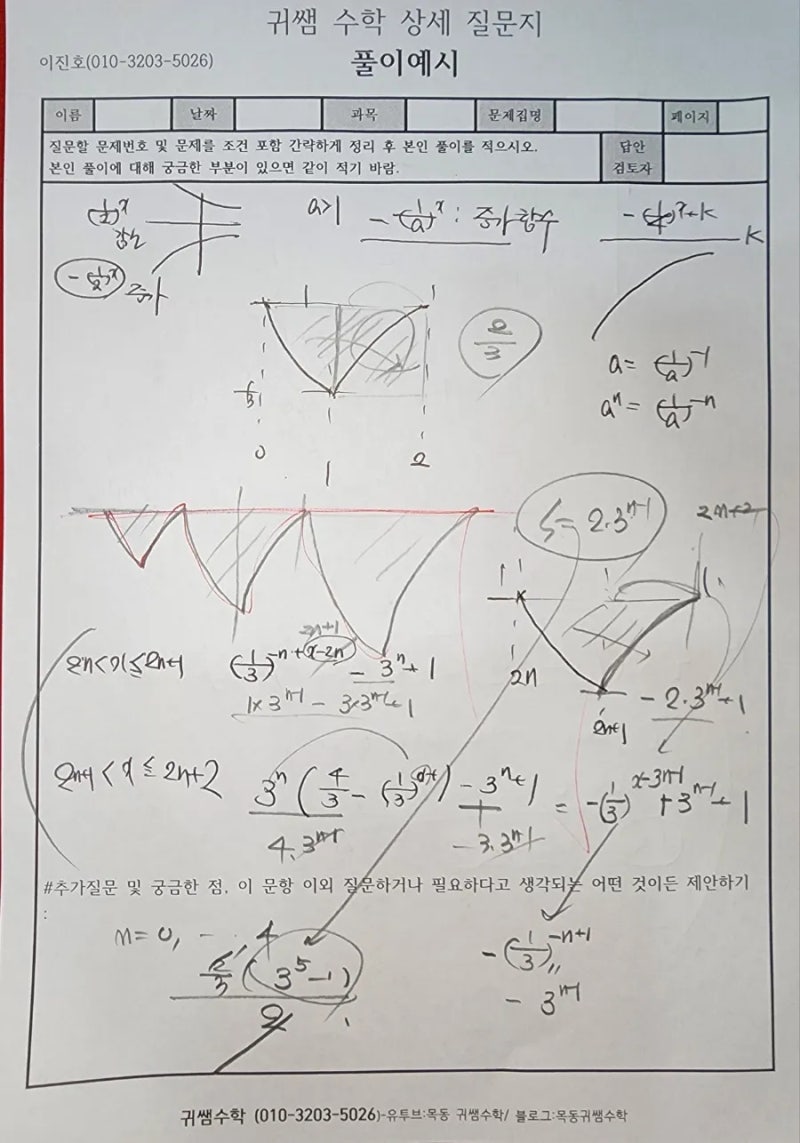 귀쌤 수학 상세 질문지
이진호(010-3203-5026)
풀이예시
이름 날짜 과목 문제집명 페이지
질문할 문제번호 및 문제를 조건 포함 간략하게 정리 후 본인 풀이를 적으시오.
본인 풀이에 대해 궁금한 부분이 있으면 같이 적기 바람.
답안
검토자
a>1
-(1/a)^x : 증가함수
K
증가
2/3
a = (1/a)^-1
a^n = (1/a)^-n
-1/3
0
1
2
S = 2·3^n-1
2n+2
2n
2n+1
-2·3^n-1+1
2n<x≤2n+1
(1/3)^-n+x-2n - 3^n+1
1×3^n-1 - 3×3^n-1+1
2n+1<x≤2n+2
4·3^n-1
- 3·3^n-1
#추가질문 및 궁금한 점, 이 문항 이외 질문하거나 필요하다고 생각되는 어떤 것이든 제안하기
:
n=0, … 4
(3^5-1)
2
-(1/3)^-n+1
- 3^n-1
귀쌤수학 (010-3203-5026)-유투브:목동 귀쌤수학/ 블로그:목동귀쌤수학